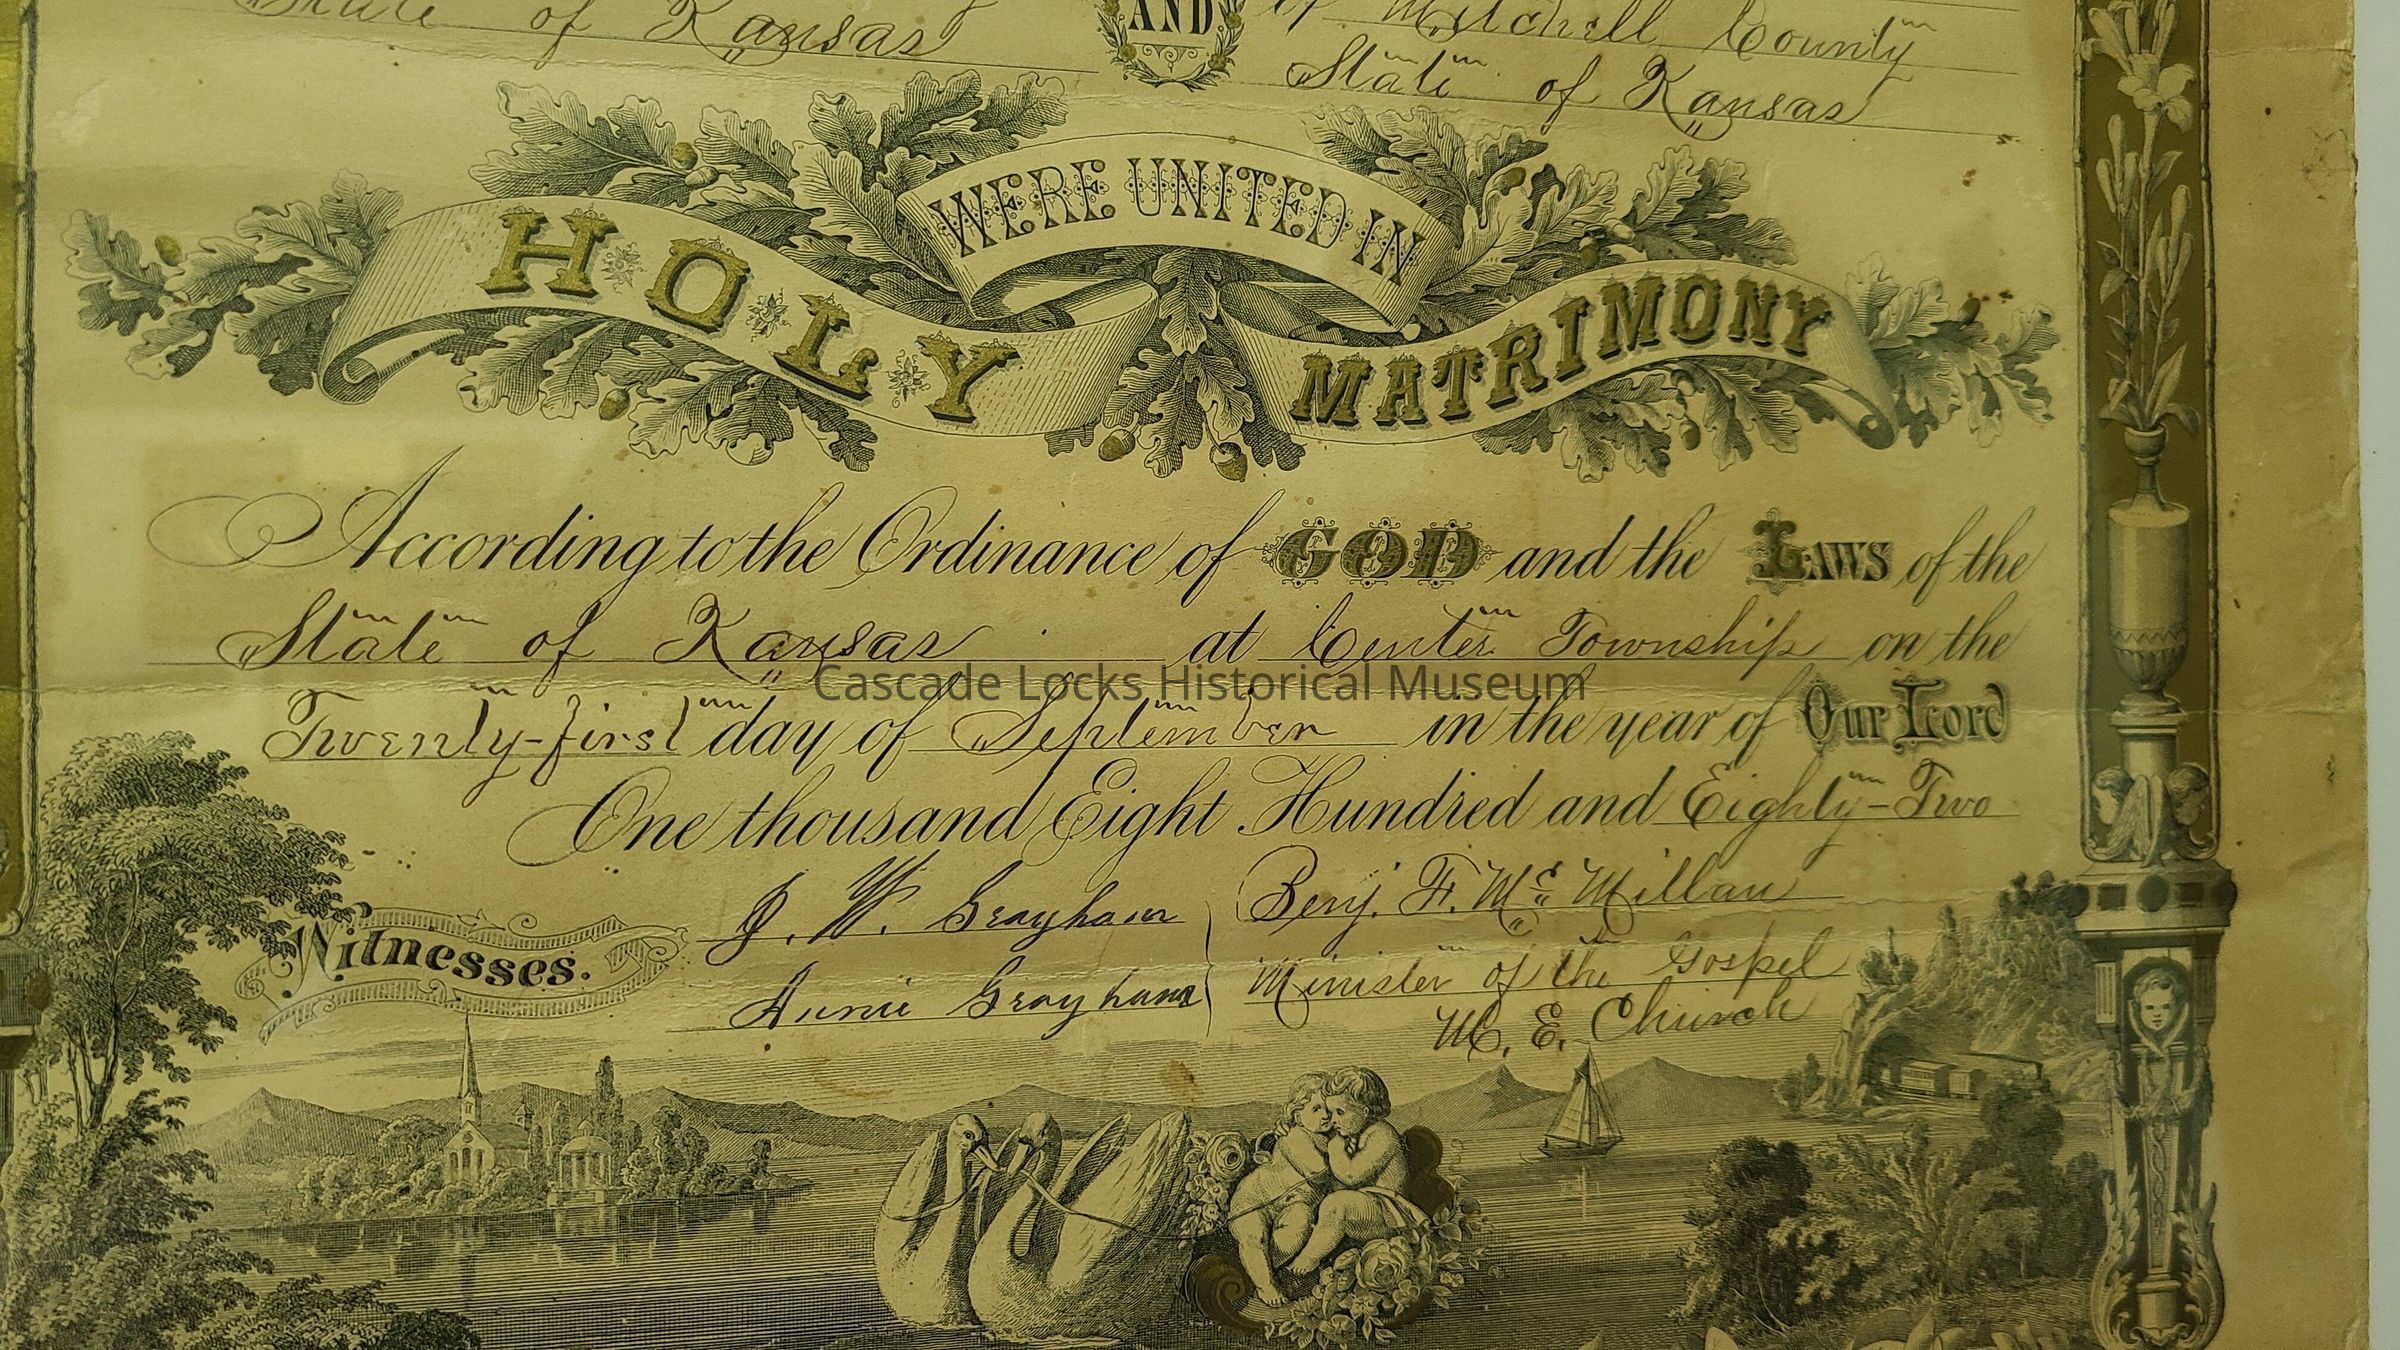 State of Kansas
AND
of Mitchell County
State of Kansas
WERE UNITED IN
HOLY MATRIMONY
According to the Ordinance of GOD and the LAWS of the
State of Kansas at Center Township on the
Twenty-first day of September in the year of Our Lord
One thousand Eight Hundred and Eighty-Two
Witnesses.
J. W. Grayham
Annie Grayham
Benj. F. Mc Millan
Minister of the Gospel
M. E. Church
Cascade Locks Historical Museum